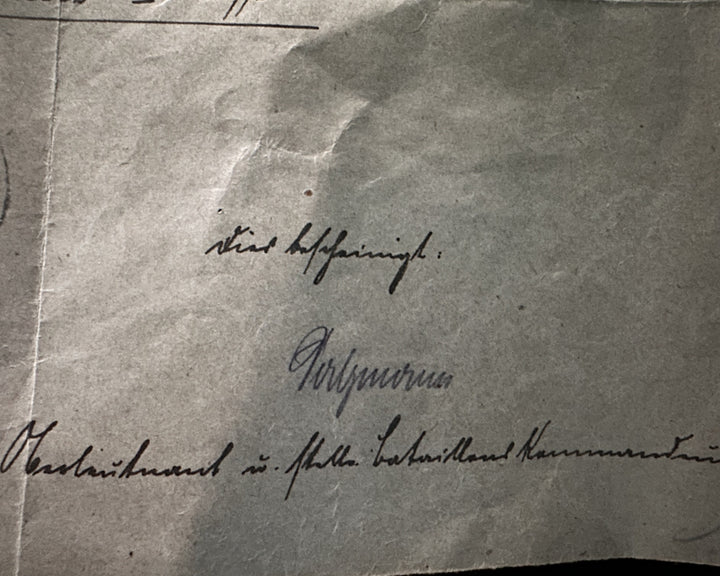 Dies bescheinigt:
Salzmann
Oberleutnant u. stellv. Bataillons Kommandeu